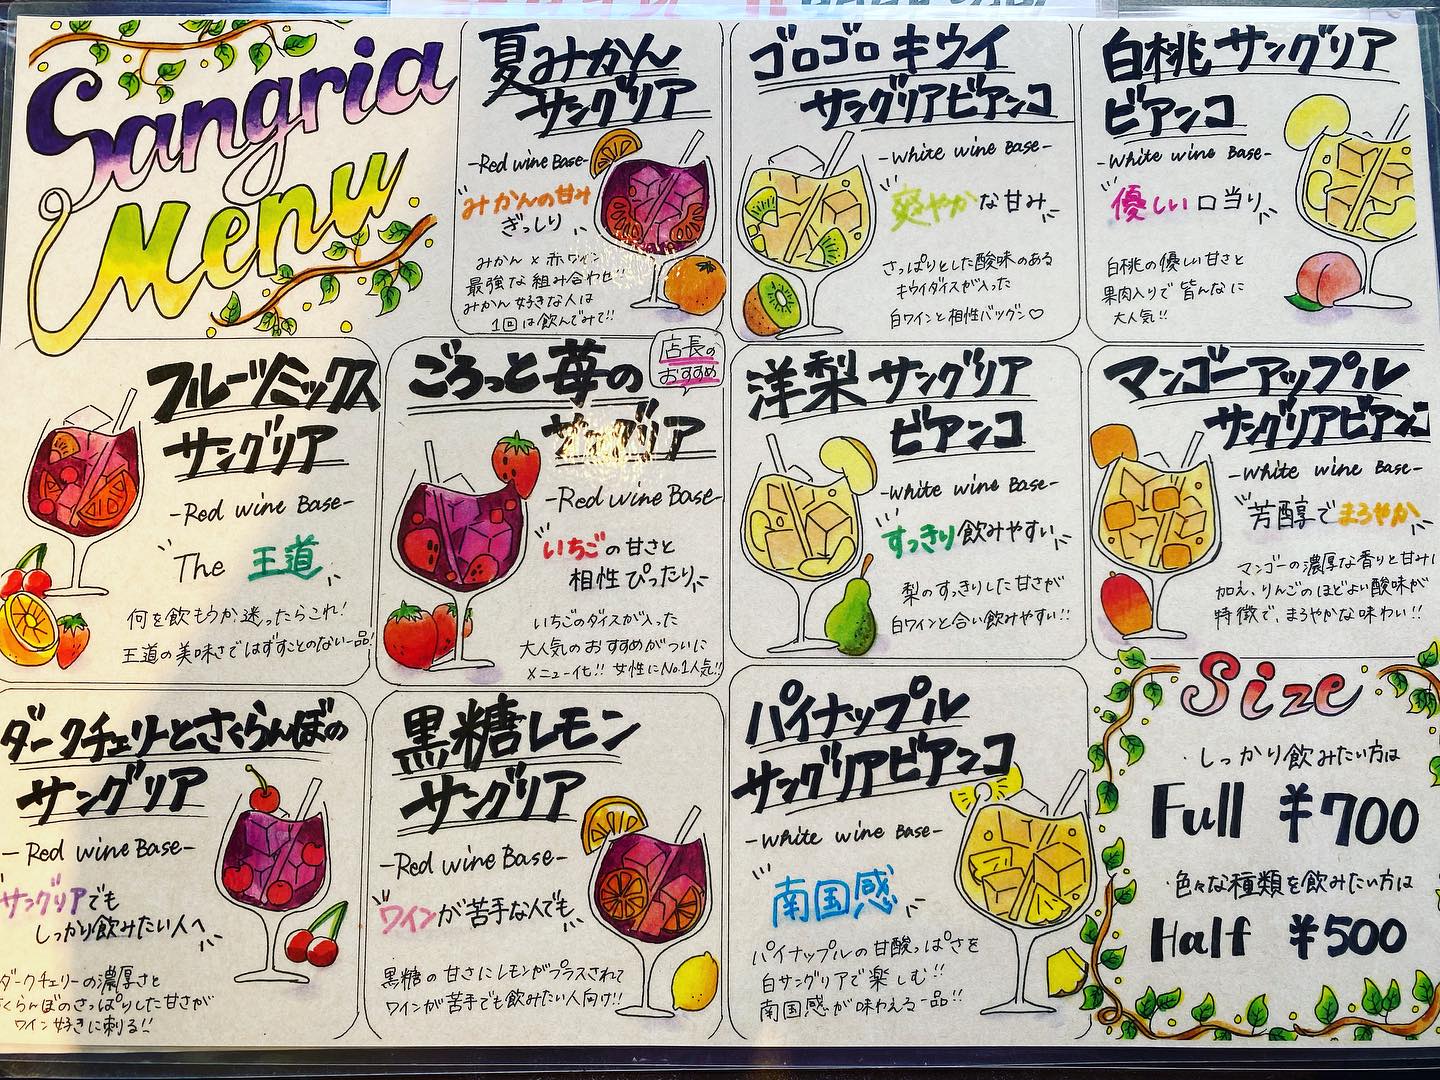 Sangria
Menu
夏みかん
サングリア
-Red wine Base-
みかんの甘み
ぎっしり
みかん×赤ワイン
最強な組み合わせ!!
みかん好きな人は
1回は飲んでみて!!
ゴロゴロキウイ
サングリアビアンコ
-White wine Base-
爽やかな甘み
さっぱりとした酸味のある
キウイダイスが入った
白ワインと相性バツグン♡
白桃サングリア
ビアンコ
-White wine Base-
優しい口当り
白桃の優しい甘さと
果肉入りで皆んなに
大人気!!
フルーツミックス
サングリア
-Red wine Base-
The 王道
何を飲もうか迷ったらこれ!
王道の美味さではずすことのない一品!
ごろっと苺の
サングリア
店長の
おすすめ
-Red wine Base-
いちごの甘さと
相性ぴったり
いちごのダイスが入った
大人気のおすすめがついに
メニュー化!! 女性にNo.1人気!!
洋梨サングリア
ビアンコ
-White wine Base-
すっきり飲みやすい
梨のすっきりした甘さが
白ワインと合い飲みやすい!!
マンゴーアップル
サングリアビアンコ
-White wine Base-
芳醇でまろやか
マンゴーの濃厚な香りと甘みに
加え、りんごのほどよい酸味が
特徴で、まろやかな味わい!!
ダークチェリーとさくらんぼの
サングリア
-Red wine Base-
サングリアでも
しっかり飲みたい人へ
ダークチェリーの濃厚さと
さくらんぼのさっぱりした甘さが
ワイン好きに刺る!!
黒糖レモン
サングリア
-Red wine Base-
ワインが苦手な人でも
黒糖の甘さにレモンがプラスされて
ワインが苦手でも飲みたい人向け!!
パイナップル
サングリアビアンコ
-White wine Base-
南国感
パイナップルの甘酸っぱさを
白サングリアで楽しむ!!
南国感が味わえる一品!!
Size
しっかり飲みたい方は
Full ¥700
色々な種類を飲みたい方は
Half ¥500